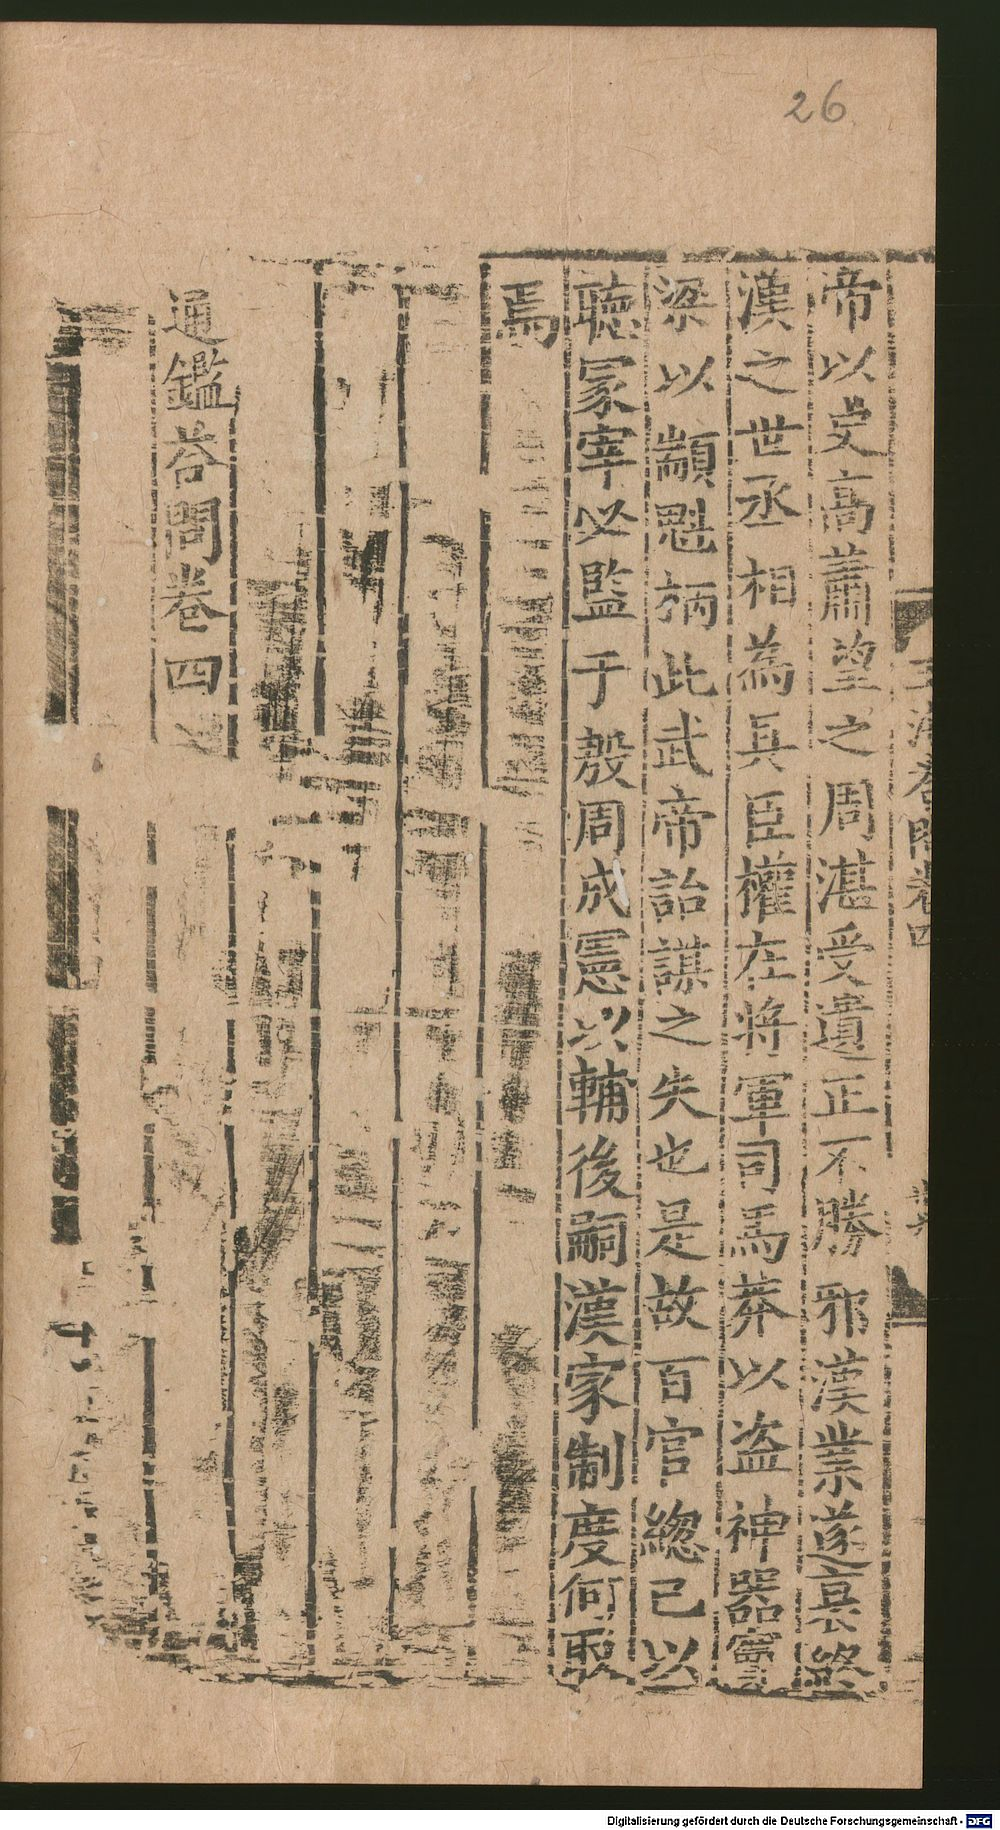 26
帝以史高蕭望之周湛受遺正不勝邪漢業遂衰終
漢之世丞相為具臣權在將軍司馬莽以盗神器竇
梁以顓魁柄此武帝詒謀之失也是故百官緫已以
聽冡宰必監于殷周成憲以輔後嗣漢家制度何取
焉
通鑑荅問卷四
Digitalisierung gefördert durch die Deutsche Forschungsgemeinschaft - DFG